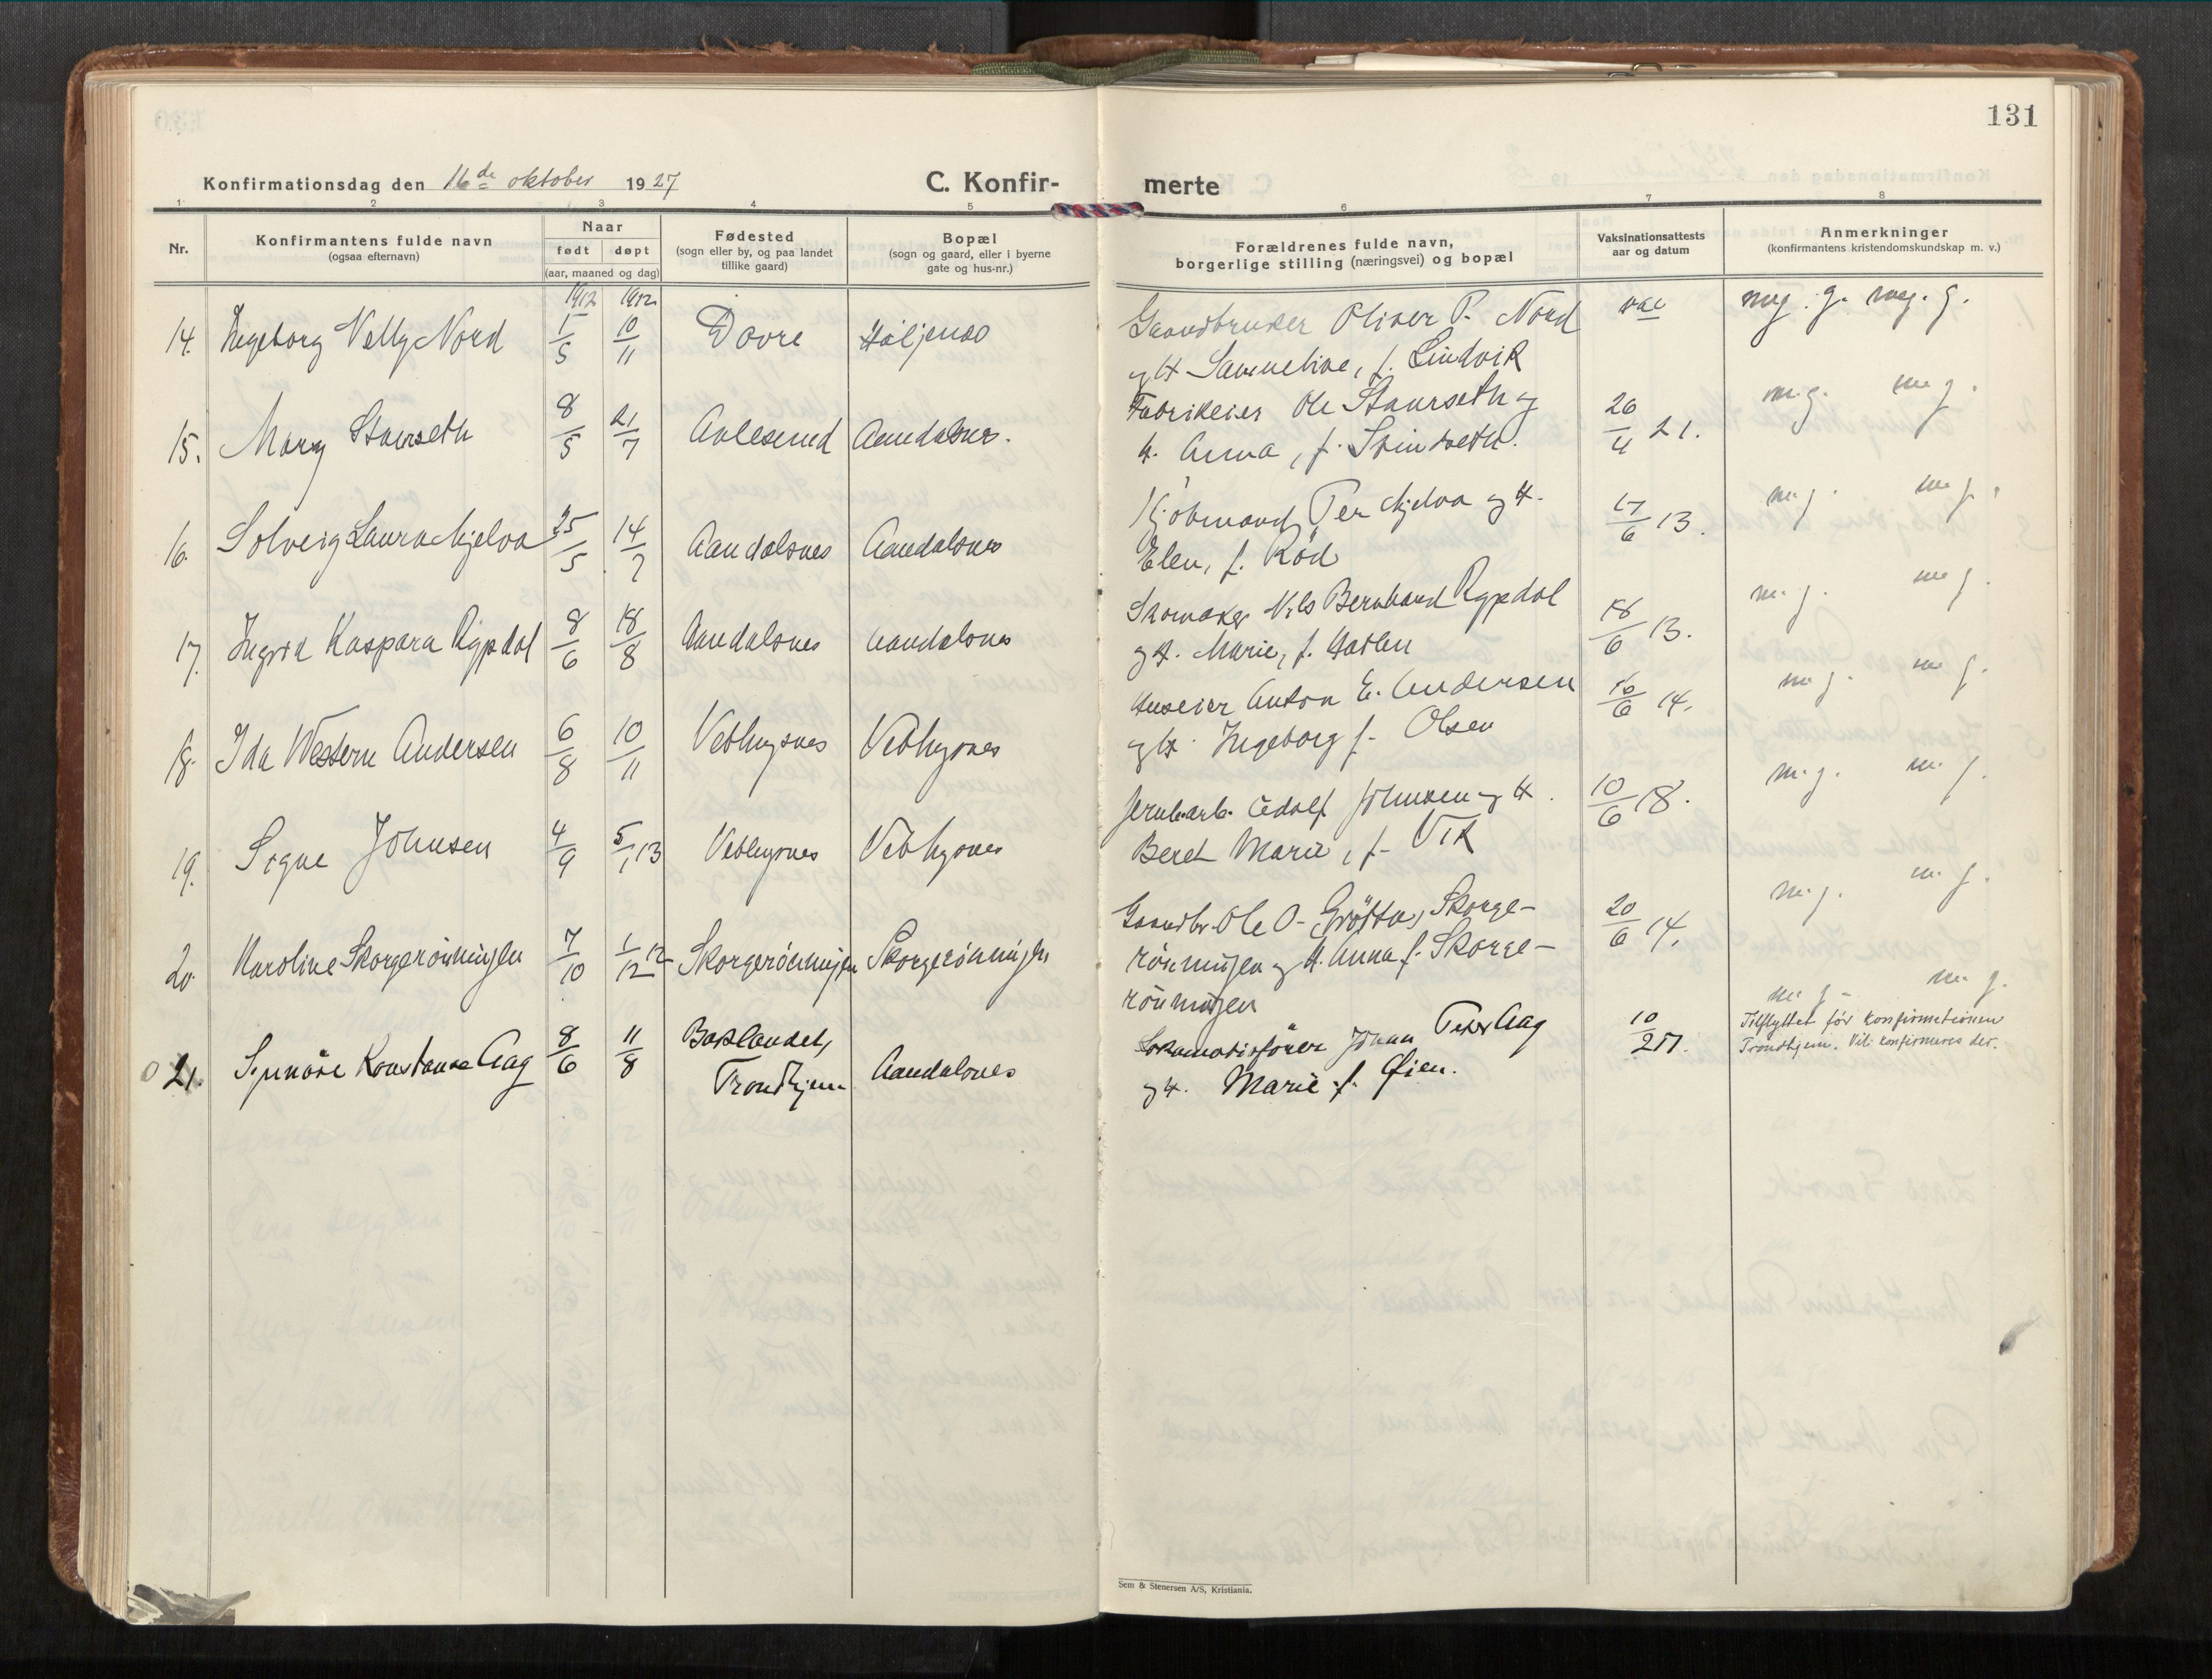 131
Konfirmationsdag den 16de oktober 1927
C. Konfir-
merte
1 2 3 4 5 6 7 8
Nr.
Konfirmantens fulde navn
(ogsaa efternavn)
Naar
født døpt
(aar, maaned og dag)
Fødested
(sogn eller by, og paa landet
tillike gaard)
Bopæl
(sogn og gaard, eller i byerne
gate og hus-nr.)
Forældrenes fulde navn,
borgerlige stilling (næringsvei) og bopæl
Vaksinationsattests
aar og datum
Anmerkninger
(konfirmantens kristendomskundskap m. v.)
1912 1912
14. Ingeborg Nelly Nord 1/5 10/11 Dovre
Gaardbruker Oliver P. Nord vac meg. g. meg. g.
og H f. Lindvik
15. Mary Staurseth 8/5 21/7 Aalesund Aandalsnes.
Fabrikeier Ole Staurseth og 26/4 21. m. g. m g.
H. Anna, f.
16. Solveig Laura Mjelva 25/5 14/7 Aandalsnes Aandalsnes
Kjøbmand Per Mjelva og H. 17/6 13. m. g. m g.
Elen, f. Röd
17. Ingrid Kaspara Rypdal 8/6 18/8 Aandalsnes Aandalsnes
Skomaker Nils Bernhard Rypdal 18/6 13. m. g. m g.
og H. Marie, f. Hatlen
18. Ida Western Andersen 6/8 10/11 Veblugsnes Veblugsnes
Huseier Anton E. Andersen 16/6 14. m g. m g.
og H. Ingeborg f. Olsen
19. Signe Johnsen 4/9 5/1 13 Veblugsnes Veblugsnes
Jernb.arb. Adolf Johnsen og H. 10/6 18. m. g. m. g.
Beret Marie, f. Vik
20. Karoline Skorgerönningen 7/10 1/12 12 Skorgerönningen Skorgerönningen
Gaardbr. Ole O. Grötta, Skorge- 20/6 14. m. g. m. g.
rönningen og H. Anna f. Skorge-
rönningen
m g - m. g.
0 21. Synnöve Konstanse Aag 8/6 11/8 Baklandet, Trondhjem Aandalsnes
Lokomotivförer Johan Peter Aag 10/2 17.
og H. Marie f. Øien.
Tilflyttet för konfirmationen
Trondhjem. Vil konfirmeres der.
Sem & Stenersen A/S, Kristiania.